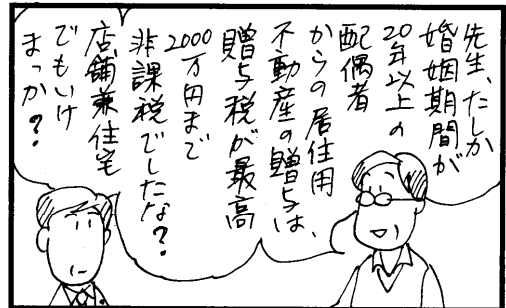 先生、たしか
婚姻期間が
20年以上の
配偶者
からの居住用
不動産の贈与は、
贈与税が最高
2000万円まで
非課税でしたな?
店舗兼住宅
でもいけ
まっか?